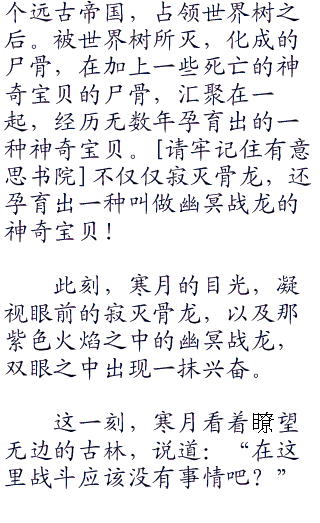 个远古帝国，占领世界树之
后。被世界树所灭，化成的
尸骨，在加上一些死亡的神
奇宝贝的尸骨，汇聚在一
起，经历无数年孕育出的一
种神奇宝贝。[请牢记住有意
思书院]不仅仅寂灭骨龙，还
孕育出一种叫做幽冥战龙的
神奇宝贝！
此刻，寒月的目光，凝
视眼前的寂灭骨龙，以及那
紫色火焰之中的幽冥战龙，
双眼之中出现一抹兴奋。
这一刻，寒月看着瞭望
无边的古林，说道：“在这
里战斗应该没有事情吧？”